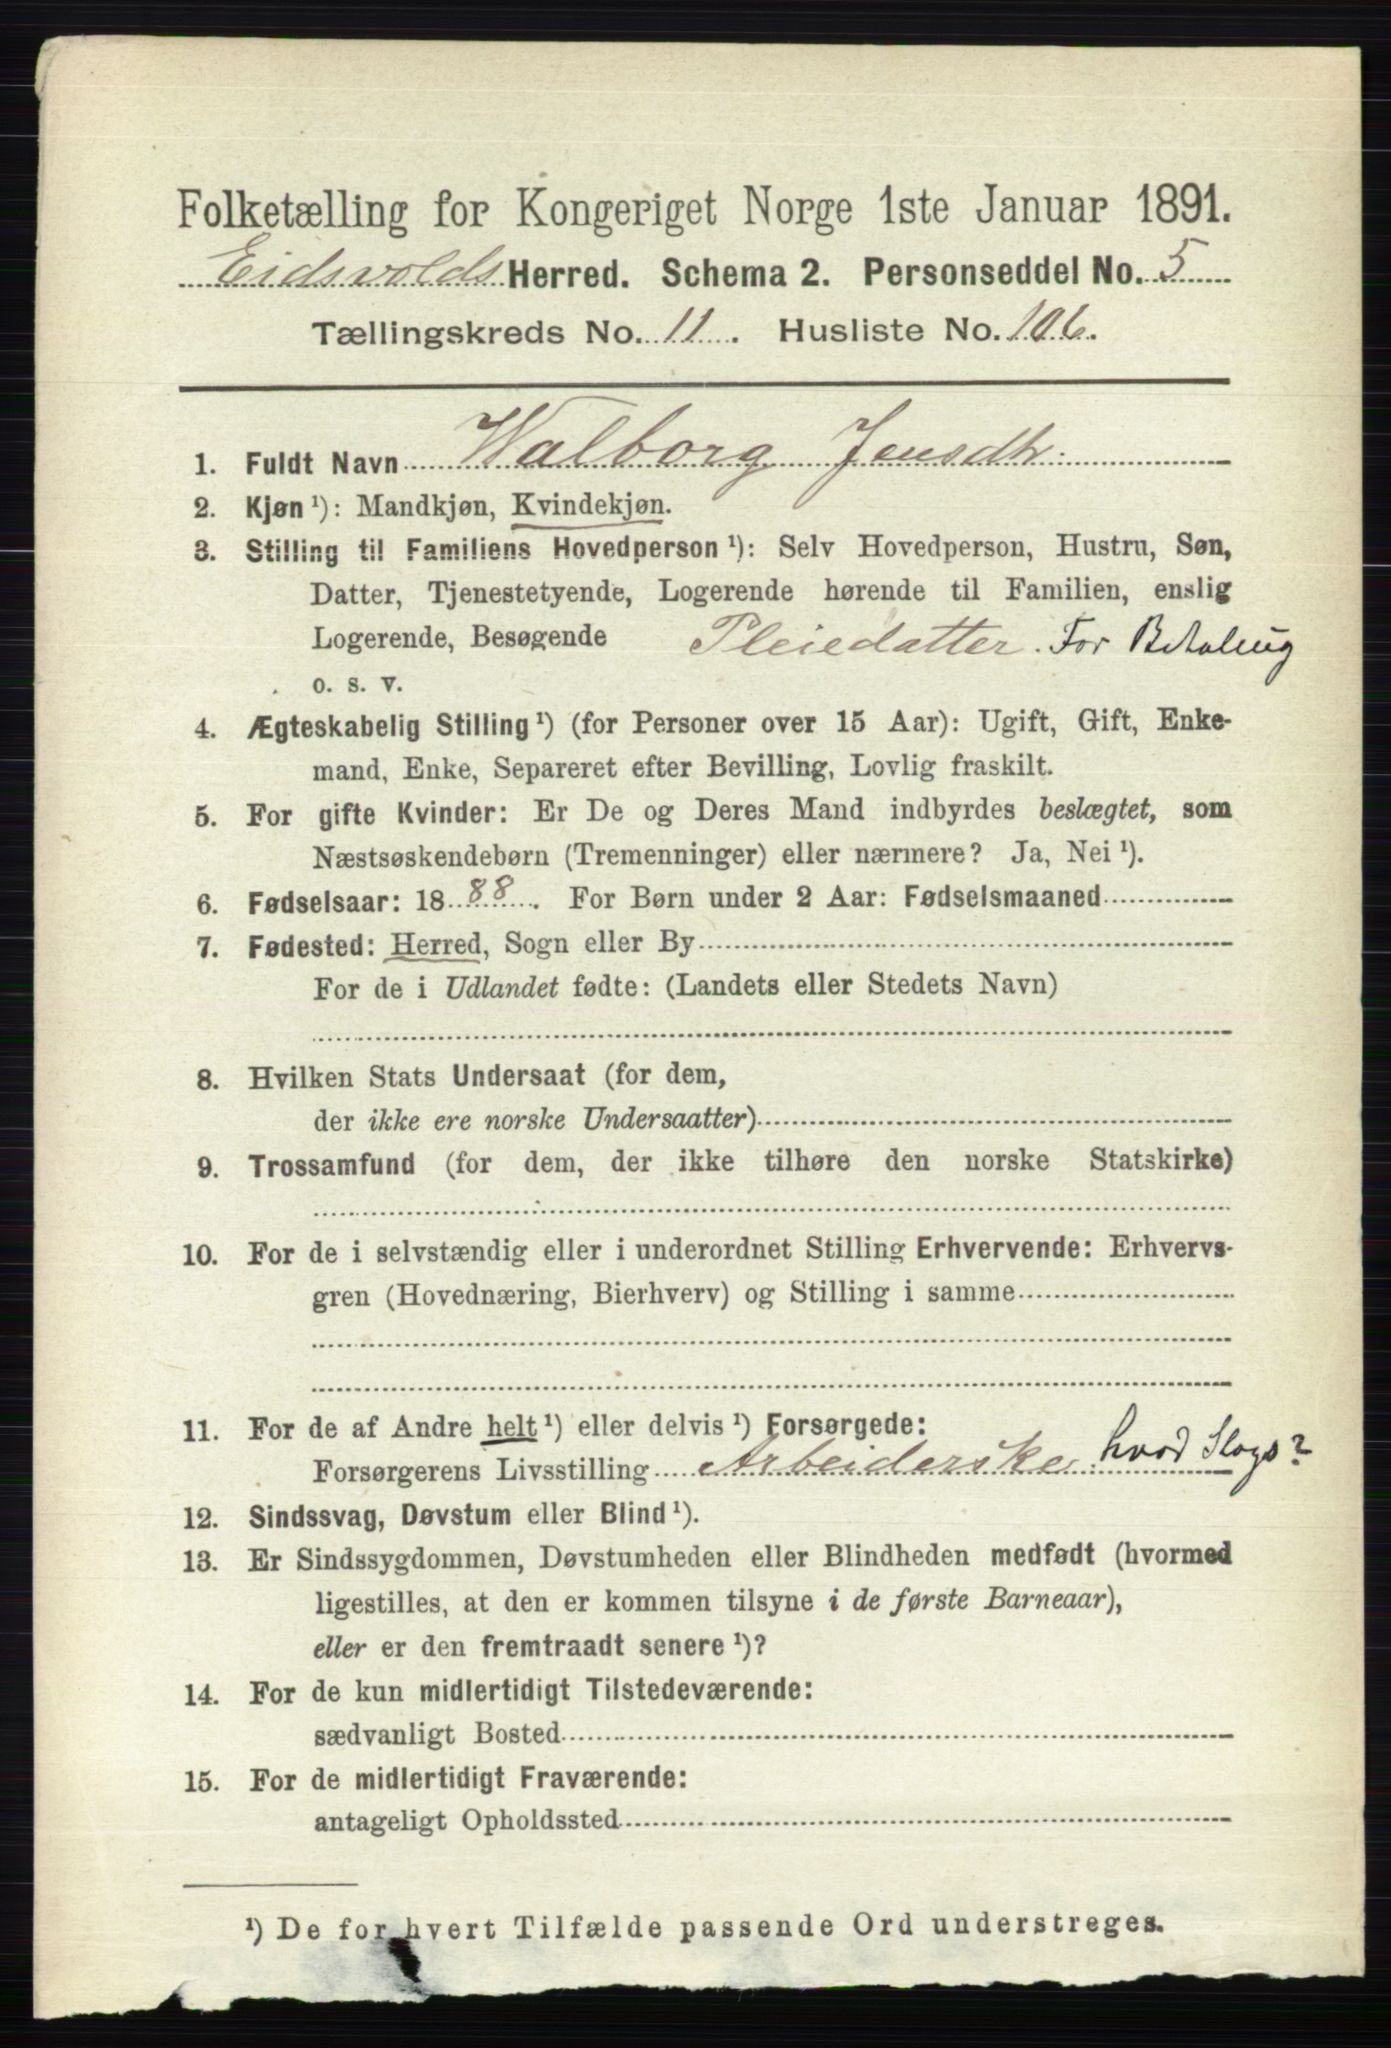 Folketælling for Kongeriget Norge 1ste Januar 1891.
Eidsvolds Herred. Schema 2. Personseddel No. 5
Tællingskreds No. 11. Husliste No. 106.
1. Fuldt Navn Walborg Jensdtr.
2. Kjøn ¹): Mandkjøn, Kvindekjøn.
3. Stilling til Familiens Hovedperson ¹): Selv Hovedperson, Hustru, Søn,
Datter, Tjenestetyende, Logerende hørende til Familien, enslig
Logerende, Besøgende Pleiedatter. For Betaling
o. s. v.
4. Ægteskabelig Stilling ¹) (for Personer over 15 Aar): Ugift, Gift, Enke-
mand, Enke, Separeret efter Bevilling, Lovlig fraskilt.
5. For gifte Kvinder: Er De og Deres Mand indbyrdes beslægtet, som
Næstsøskendebørn (Tremenninger) eller nærmere? Ja, Nei ¹).
6. Fødselsaar: 1888. For Børn under 2 Aar: Fødselsmaaned
7. Fødested: Herred, Sogn eller By
For de i Udlandet fødte: (Landets eller Stedets Navn)
8. Hvilken Stats Undersaat (for dem,
der ikke ere norske Undersaatter)
9. Trossamfund (for dem, der ikke tilhøre den norske Statskirke)
10. For de i selvstændig eller i underordnet Stilling Erhvervende: Erhvervs-
gren (Hovednæring, Bierhverv) og Stilling i samme
11. For de af Andre helt ¹) eller delvis ¹) Forsørgede:
Forsørgerens Livsstilling Arbeiderske hvad Slags?
12. Sindssvag, Døvstum eller Blind ¹).
13. Er Sindssygdommen, Døvstumheden eller Blindheden medfødt (hvormed
ligestilles, at den er kommen tilsyne i de første Barneaar),
eller er den fremtraadt senere ¹)?
14. For de kun midlertidigt Tilstedeværende:
sædvanligt Bosted
15. For de midlertidigt Fraværende:
antageligt Opholdssted
¹) De for hvert Tilfælde passende Ord understreges.